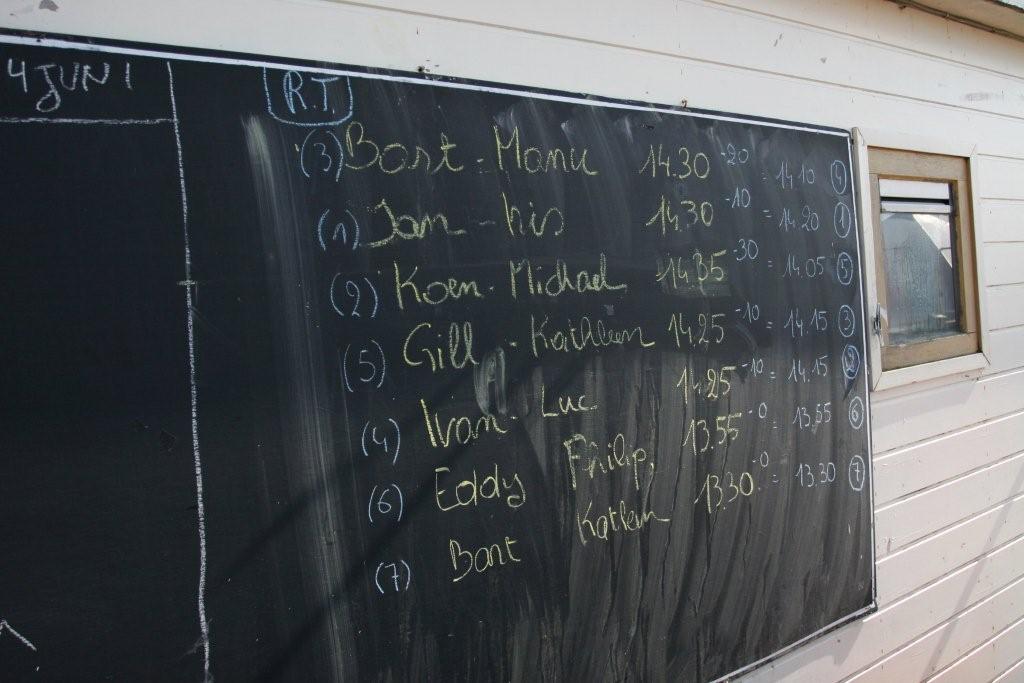 4 JUNI
R.T.
(3) Bart - Manu 14.30 -20 = 14.10 4
(1) Jan - his 14.30 -10 = 14.20 1
(2) Koen - Michael 14.35 -30 = 14.05 5
(5) Gill - Kathleen 14.25 -10 = 14.15 3
(4) Ivan - Luc 14.25 -10 = 14.15 2
(6) Eddy Philip, 13.55 -0 = 13.55 6
(7) Bart Katleen 13.30 -0 = 13.30 7